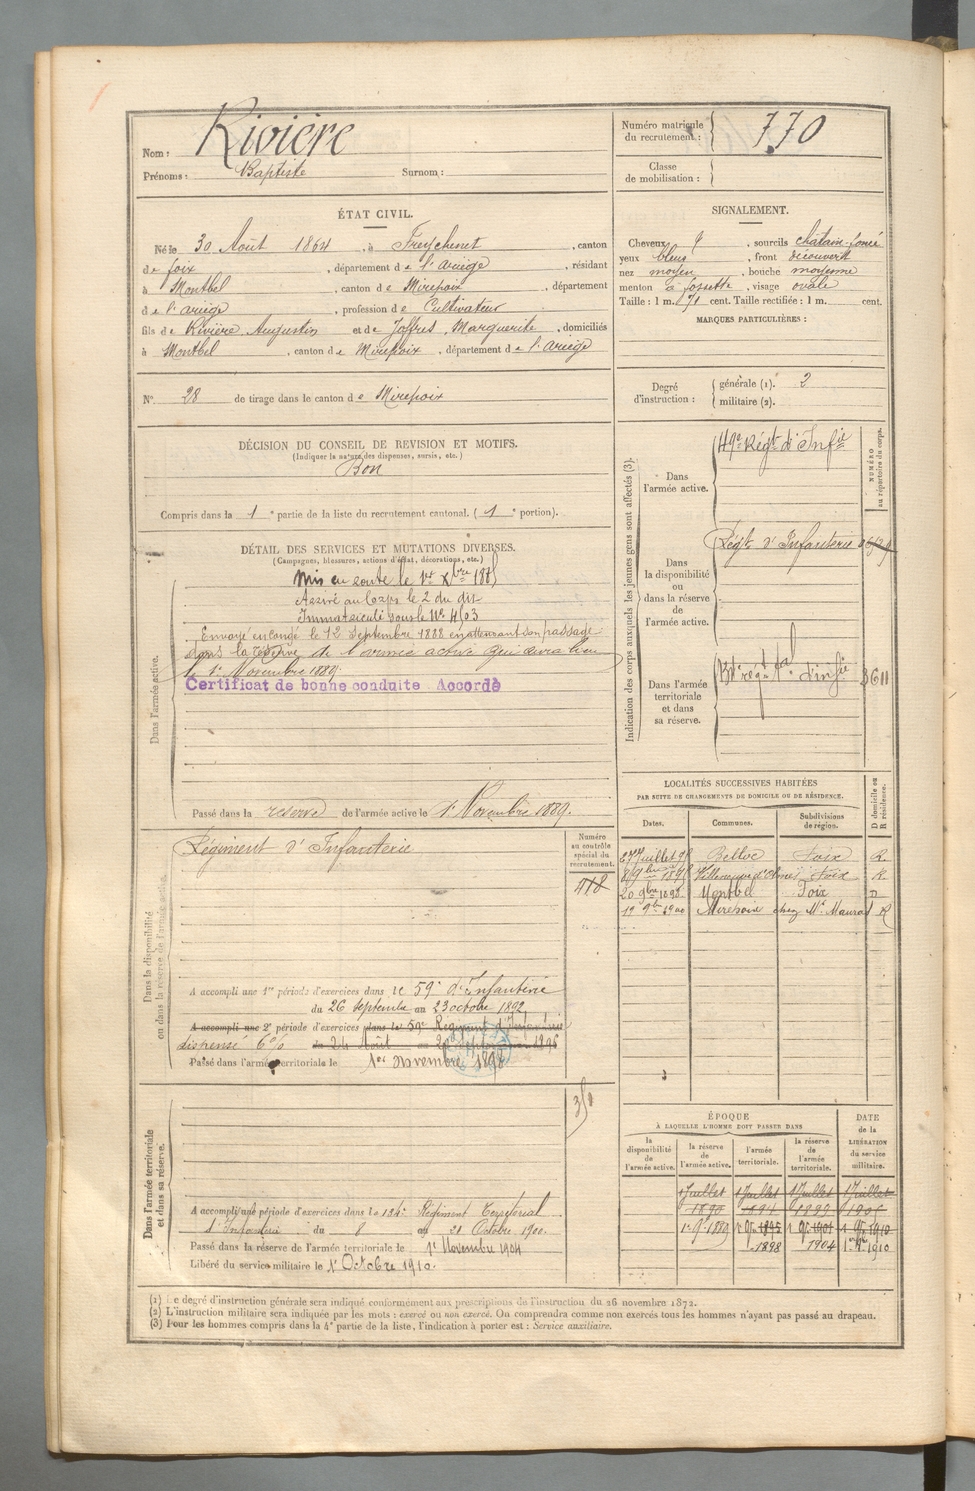 Nom : Rivière
Prénoms : Baptiste Surnom :
Numéro matricule du recrutement : 770
Classe de mobilisation :
ÉTAT CIVIL.
Né le 30 Août 1864, à Freychenet, canton
de foix, département de l'ariège, résidant
à Montbel, canton de Mirepoix, département
de l'ariège, profession de Cultivateur
fils de Rivière Augustin et de Joffres Marguerite, domiciliés
à Montbel, canton de Mirepoix, département de l'ariège
N° 28 de tirage dans le canton de Mirepoix
SIGNALEMENT.
Cheveux, sourcils châtain-foncé
yeux bleus, front découvert
nez moyen, bouche moyenne
menton à fossette, visage ovale
Taille : 1 m. 71 cent. Taille rectifiée : 1 m. cent.
MARQUES PARTICULIÈRES :
Degré d'instruction : générale (1). 2
militaire (2).
DÉCISION DU CONSEIL DE REVISION ET MOTIFS.
(Indiquer la nature des dispenses, sursis, etc.)
Bon
Compris dans la 1e partie de la liste du recrutement cantonal. (1e portion).
DÉTAIL DES SERVICES ET MUTATIONS DIVERSES.
(Campagnes, blessures, actions d'éclat, décorations, etc.)
Dans l'armée active.
Mis en route le 1er Xbre 1885
Arrivé au Corps le 2 du dit
Immatriculé sous le N° 4103
Envoyé en congé le 12 Septembre 1888 en attendant son passage
dans la réserve de l'armée active qui aura lieu
le 1er Novembre 1889.
Certificat de bonne conduite Accordé
Passé dans la reserve de l'armée active le 1er Novembre 1889.
Indication des corps auxquels les jeunes gens sont affectés (3).
NUMÉRO au répertoire du corps.
Dans l'armée active.
Régt d'Infie
Dans la disponibilité ou dans la réserve de l'armée active.
Régt d'Infanterie
Dans l'armée territoriale et dans sa réserve.
régt tal d'infie 3611
LOCALITÉS SUCCESSIVES HABITÉES
PAR SUITE DE CHANGEMENTS DE DOMICILE OU DE RÉSIDENCE.
Dates. Communes. Subdivisions de région. D domicile ou R résidence.
27 Juillet Belloc Foix R.
Villeneuve d'Olmes Foix R
20 9bre 1898 Montbel Foix D
1900 Mirepoix chez Mr R
Dans la disponibilité ou dans la réserve de l'armée active.
Numéro au contrôle spécial du recrutement.
Régiment d'Infanterie
418
A accompli une 1re période d'exercices dans le 59e d'Infanterie
du 26 Septembre au 23 octobre 1892
A accompli une 2e période d'exercices dans le 59e Régiment d'Infanterie
dispensé 6% du 24 Août au 1896
Passé dans l'armée territoriale le 1er novembre 1898
Dans l'armée territoriale et dans sa réserve.
A accompli une période d'exercices dans le 134e Régiment Territorial
d'Infanterie du 8 au 21 Octobre 1900.
Passé dans la réserve de l'armée territoriale le 1er Novembre 1904
Libéré du service militaire le 1er Octobre 1910.
ÉPOQUE
À LAQUELLE L'HOMME DOIT PASSER DANS
DATE de la LIBÉRATION du service militaire.
la disponibilité de l'armée active. la réserve de l'armée active. l'armée territoriale. la réserve de l'armée territoriale.
1 Juillet 1 Juillet 1 Juillet 1 Juillet
1890 1894 1899 1905
1er 9bre 1889 1er 9bre 1895 1er 9bre 1901 1910
1898 1904 1910
(1) Le degré d'instruction générale sera indiqué conformément aux prescriptions de l'instruction du 26 novembre 1872.
(2) L'instruction militaire sera indiquée par les mots : exercé ou non exercé. On comprendra comme non exercés tous les hommes n'ayant pas passé au drapeau.
(3) Pour les hommes compris dans la 4e partie de la liste, l'indication à porter est : Service auxiliaire.